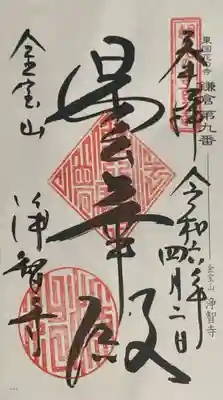 東国花の寺 鎌倉 第九番
金宝山 浄智寺
奉拝 令和六年四月二日
曇華殿
金宝山 浄智寺